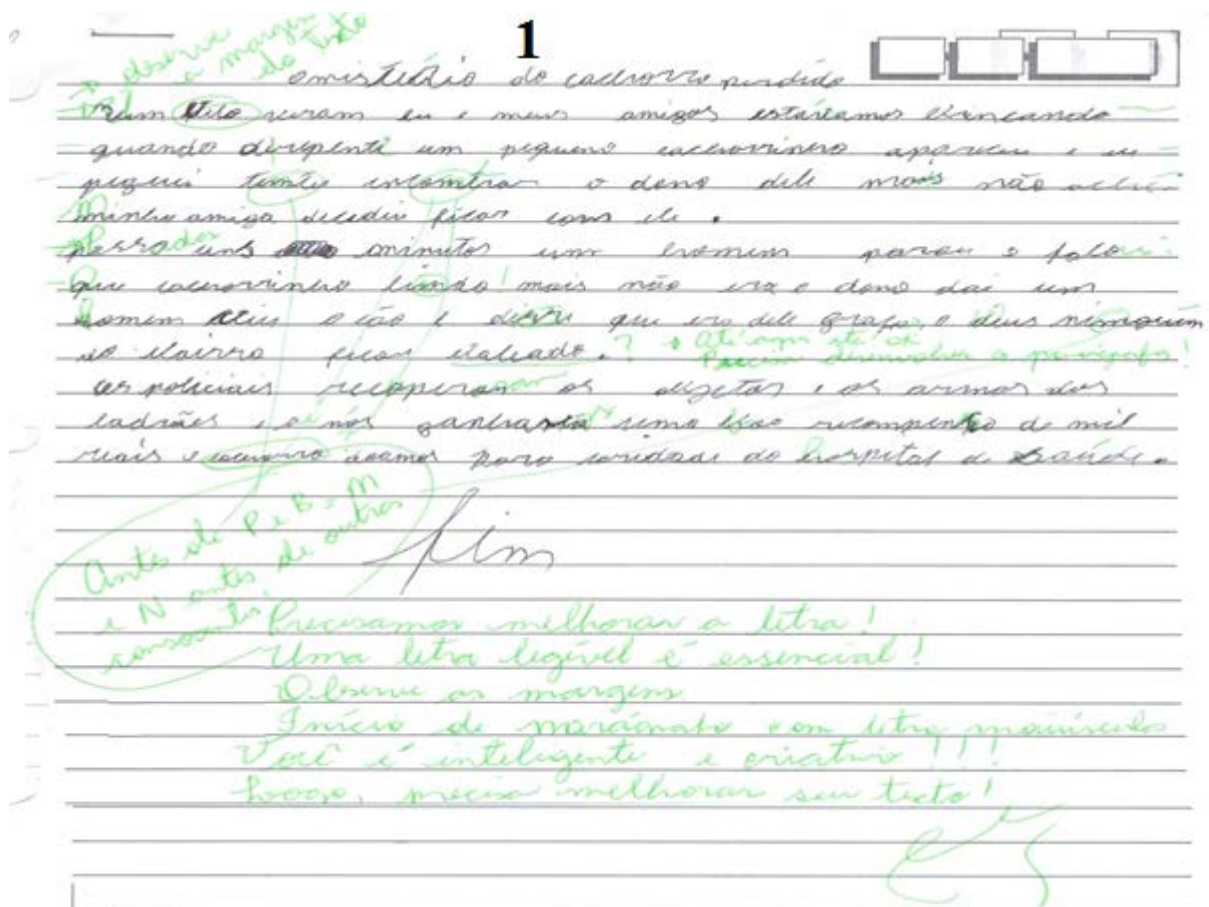 1
observe
a margem
do texto
omisterio do cachorro perdido
num belo veram eu e meus amigos estavamos brincando
quando direpente um pequeno cachorrinho apareceu e eu
peguei tentei encomtrar o dono dele mais não achei
minha amiga decediu ficar com ele.
passado uns minutos um homem parou e falou
que cachorrinho limdo! mais não era o dono dai um
homem o cão e disse que era dele graças a deus nimguem
do bairro ficou baleado. ?
Até aqui
Precisa desenvolver o parágrafo!
os policiais recuperaram os objetos e as armas dos
ladrães e nós ganhamos uma recompença de mil
reais e cachorro doamos para caridade do hospital da Saúde.
fim
Antes de P e B = M
e N antes de outras
consoantes.
Precisamos melhorar a letra!
Uma letra legível é essencial!
Observe as margens
Início de parágrafo com letra maiúscula
Você é inteligente e criativo!!!
Logo, precisa melhorar seu texto!